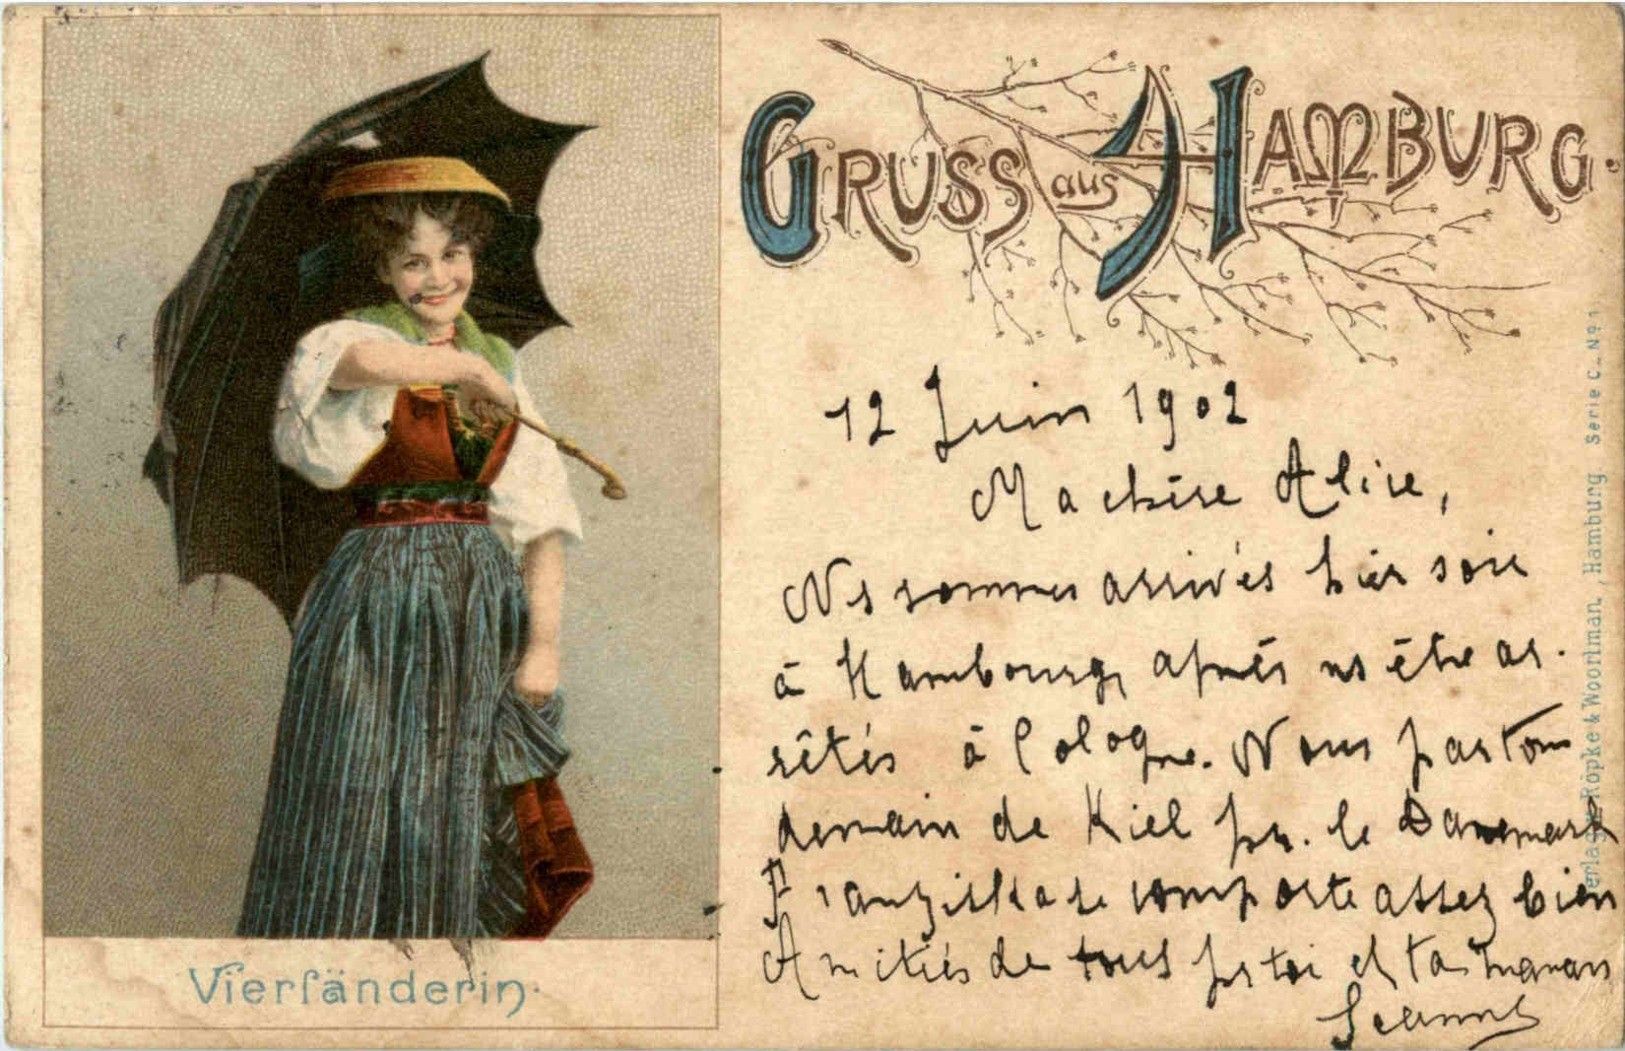 GRUSS aus HAMBURG.
12 Juin 1902
Ma chère Alice,
Ns sommes arrivés hier soir
à Hambourg, après ns être ar-
rêtés à Cologne. Nous partons
demain de Kiel pr. le Danemark
Franziska se comporte assez bien
Amitiés de tous pr toi et ta maman
Jeanne
Vierländerin.
Verlag Röpke & Woortman, Hamburg Serie C_Nº 1